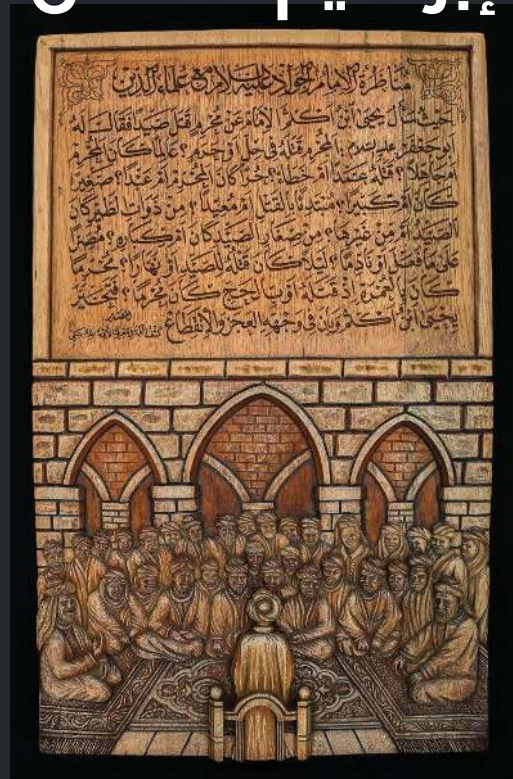 مناظرة الامام الجواد عليه السلام مع علماء الدين
حيث سأل يحيى ابن اكثم الامام عن محرم قتل صيدا فقال له
ابو جعفر عليه السلام: المحرم قتله في حل او حرم؟ عالما كان المحرم
ام جاهلا؟ قتله عمدا او خطأ؟ حرا كان المحرم ام عبدا؟ صغيرا
كان او كبيرا؟ مبتدئا بالقتل او معيدا؟ من ذوات الطير كان
الصيد ام من غيرها؟ من صغار الصيد كان ام كباره؟ مصرا
على ما فعل او نادما؟ ليلا كان قتله للصيد او نهارا؟ محرما
كان بالعمرة اذ قتله او بالحج كان محرما؟ فتحير
يحيى ابن اكثم وبان في وجهه العجز والانقطاع